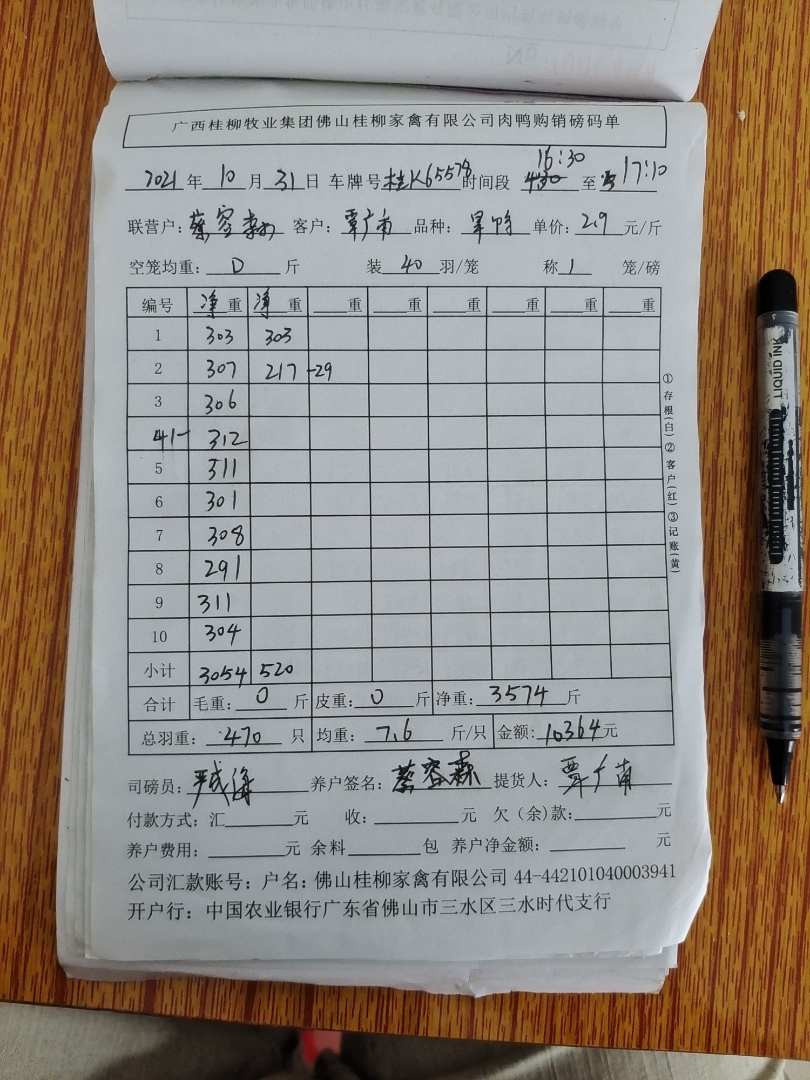 广西桂柳牧业集团佛山桂柳家禽有限公司肉鸭购销磅码单
2021年10月31日 车牌号桂K65578时间段 16:30 至17:10
联营户:蔡容森 客户:覃广南 品种: 单价:2.9元/斤
空笼均重:0斤 装40羽/笼 称1笼/磅
编号 净重 净重 重 重 重 重 重 重
1 303 303
2 307 217 -29
3 306
4 1- 312
5 311
6 301
7 308
8 291
9 311
10 304
小计 3054 520
合计 毛重:0斤 皮重:0斤 净重:3574斤
总羽重:470只 均重:7.6斤/只 金额:10364元
司磅员: 养户签名:蔡容森 提货人:覃广南
付款方式:汇 元 收: 元 欠(余)款: 元
养户费用: 元 余料 包 养户净金额: 元
公司汇款账号:户名:佛山桂柳家禽有限公司 44-442101040003941
开户行:中国农业银行广东省佛山市三水区三水时代支行
①存根(白)②客户(红)③记账(黄)
LIQUID INK